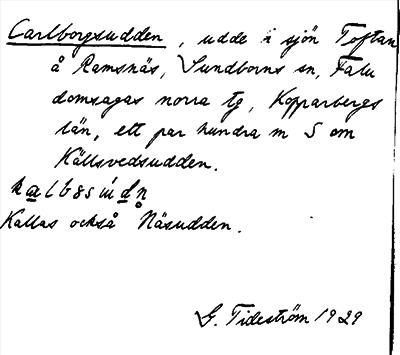 Carlborgsudden, udde i sjön Toftan
å Ramsnäs, Sundborns sn, Falu
domsagas norra tg, Kopparbergs
län, ett par hundra m S om
Källsvedsudden.
Kallas också Näsudden.
G. Tideström 1929